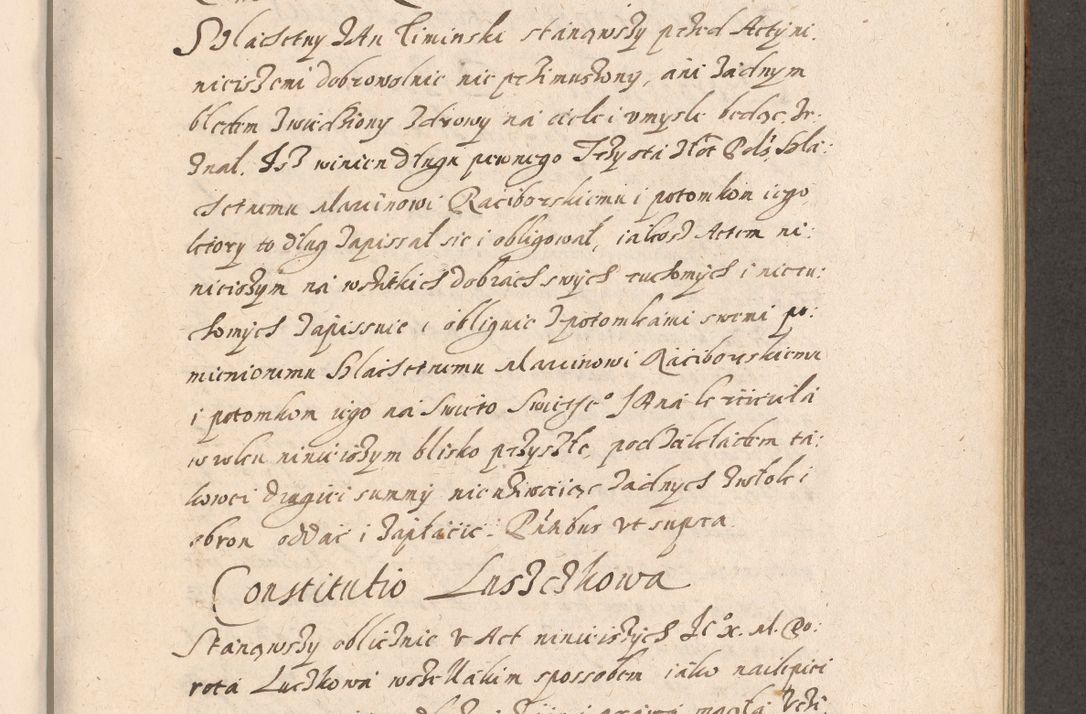 Szlachetny JAn Timinski stanąwszy przed Acty ni:
niciszemi dobrowolnie nie przimuszony, ani żadnym
błędem zwiedziony zdrowy na ciele i umysle będąc ze:
znał. Isz winien długu pewnego Trzysta złot Pols. Szla:
chetnemu Marcinowi Raciborskiemu i potomkom iego,
ktory to dług zapissał sie i obligował, iakosz Actem ni:
niciszym na wszitkich dobrach swych ruchomych i nieru:
chomych zapissuie i obliguie z potomkami swemi po:
mienionemu Szlachetnemu Marcinowi Raciborskiemu
i potomkom iego na Swięto Swiętego JAna
w roku niniciszym blisko przyszłe, pod zakładem ta:
kowei drugiei summy nie użiwaiąc żadnych zwłok i
obron oddac i zapłacic. Pnbus ut supra.
Constitutio Luszczkowa
Stanąwszy oblicznie u Act niniciszych M. Do:
rota Luczkowa wszellakim sposobem iako nailepiei